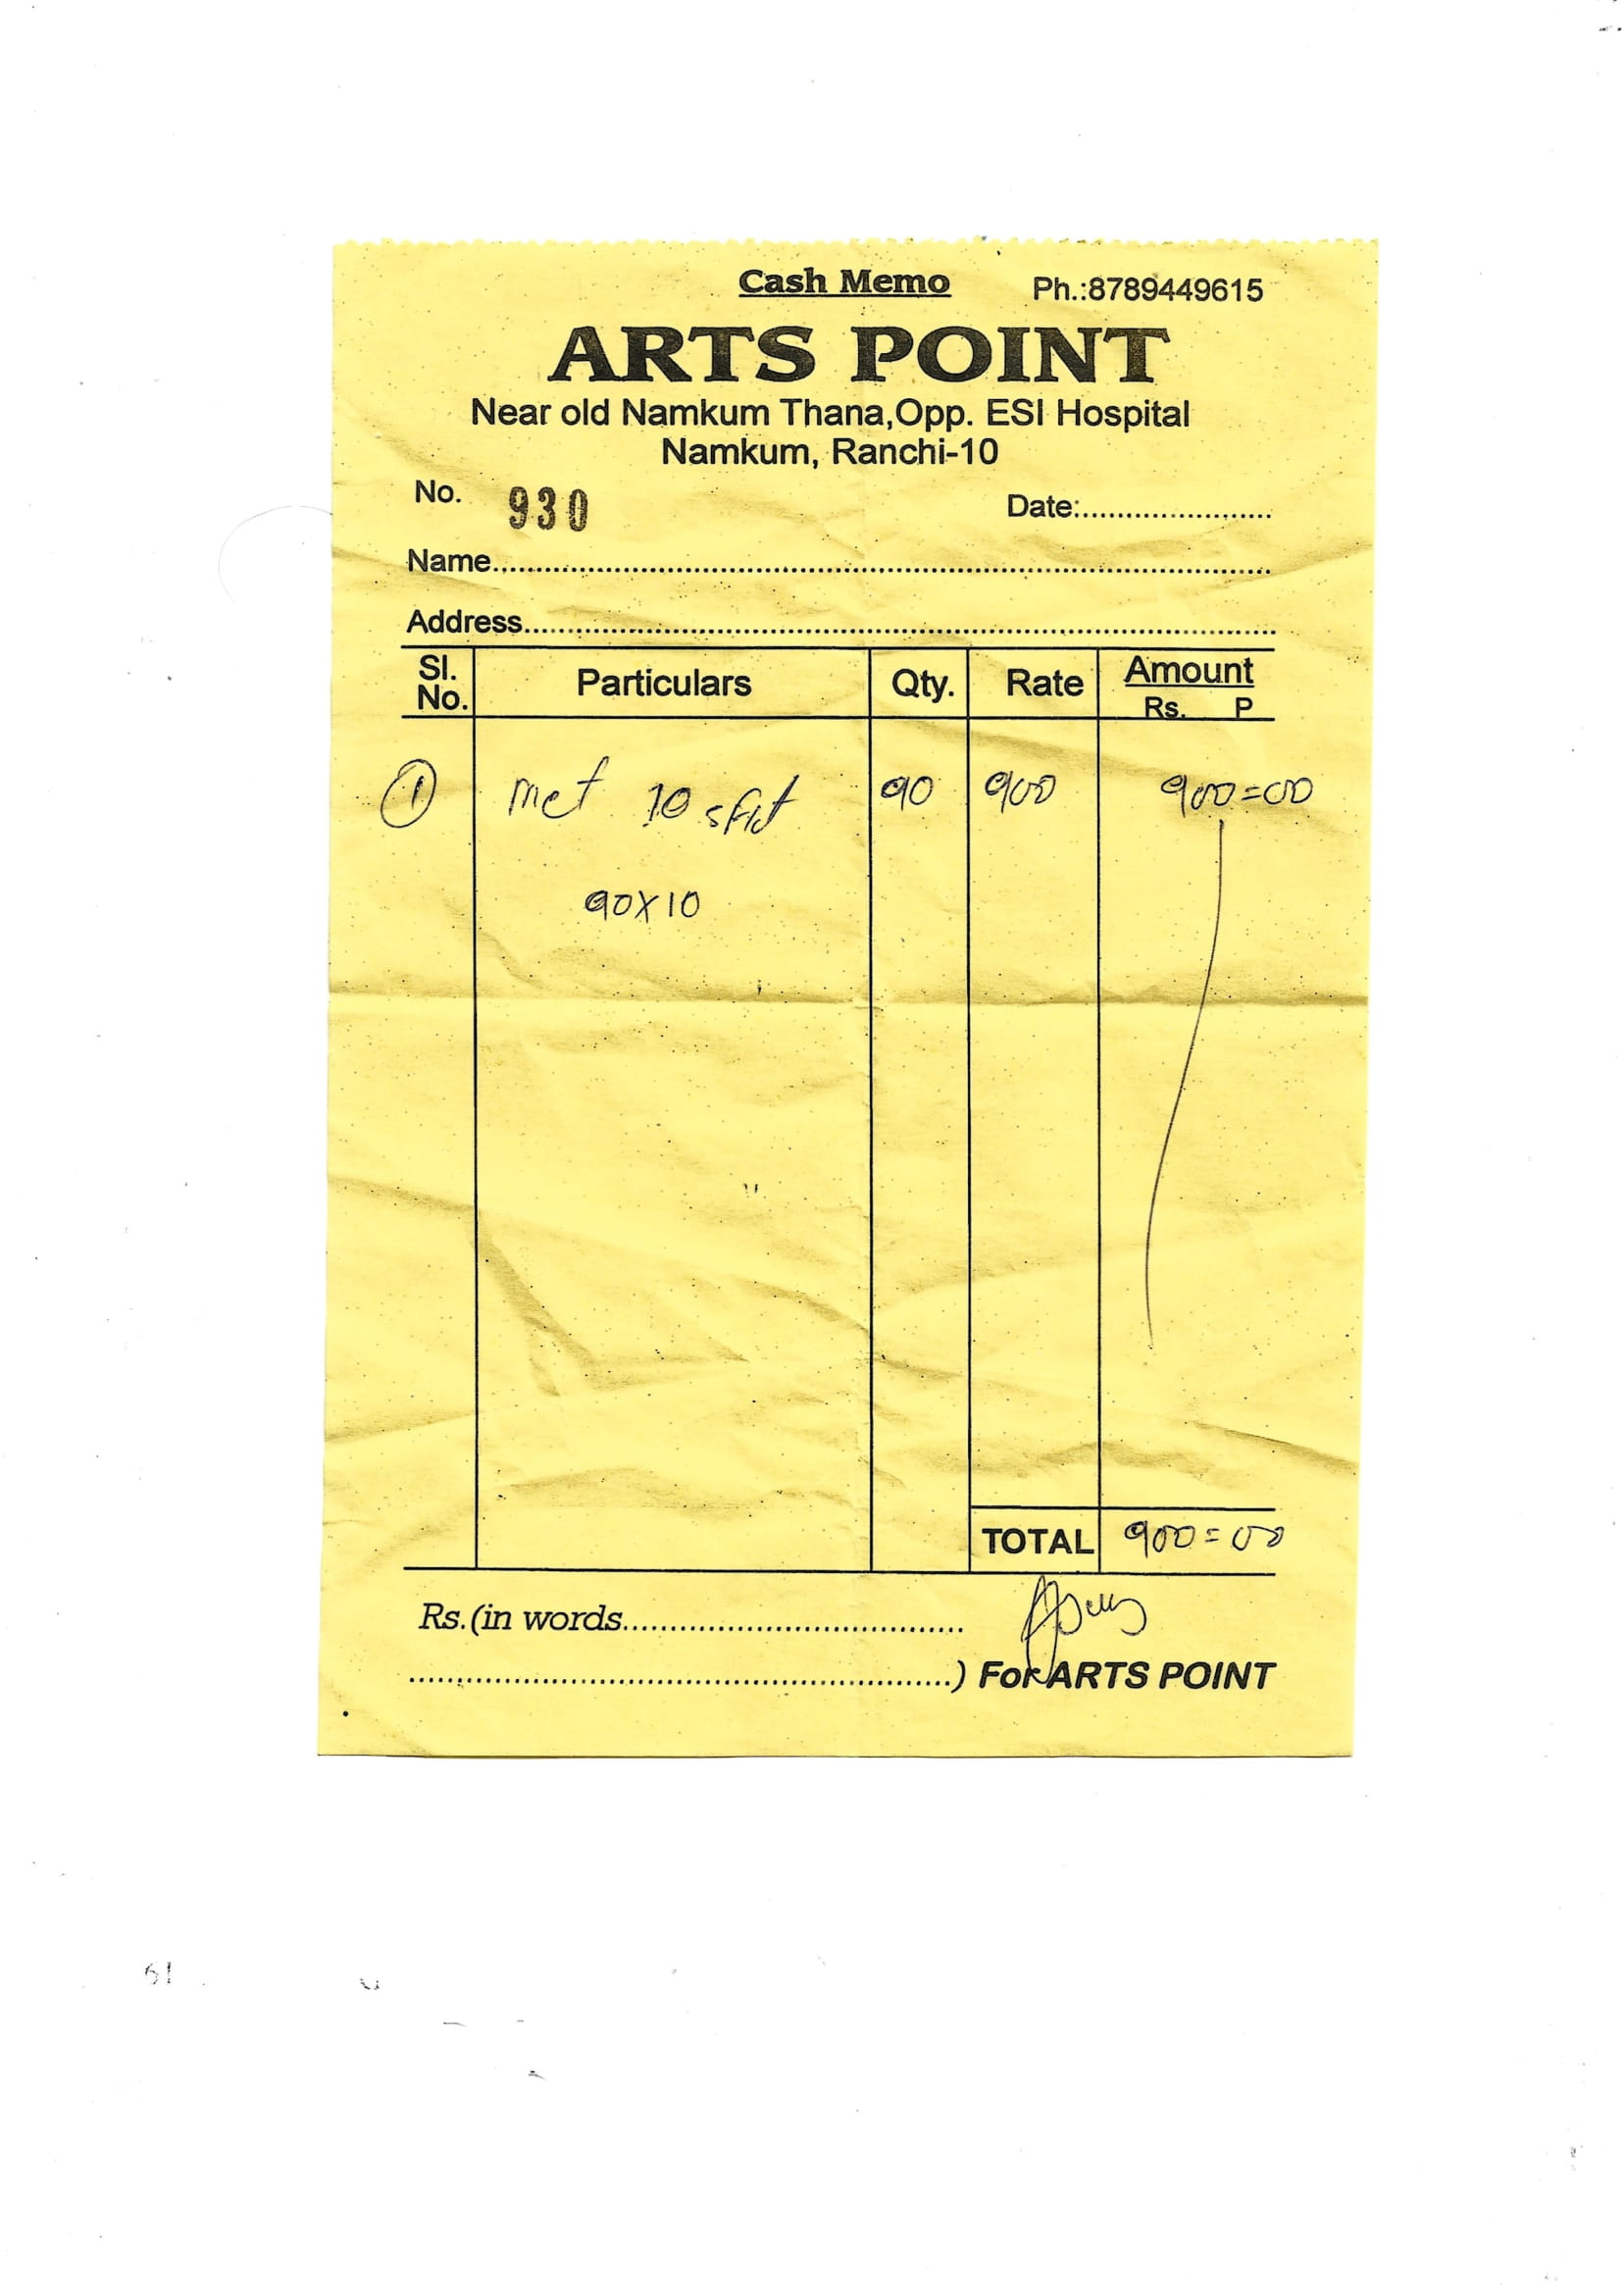 Cash Memo Ph.:8789449615
ARTS POINT
Near old Namkum Thana,Opp. ESI Hospital
Namkum, Ranchi-10
No. 930 Date:......................
Name..........................................................................................
Address.......................................................................................
Sl. No. Particulars Qty. Rate Amount Rs. P
① met 10 sfit 90 900 900=00
90X10
TOTAL 900=00
Rs.(in words.......................................
...............................................................) For ARTS POINT